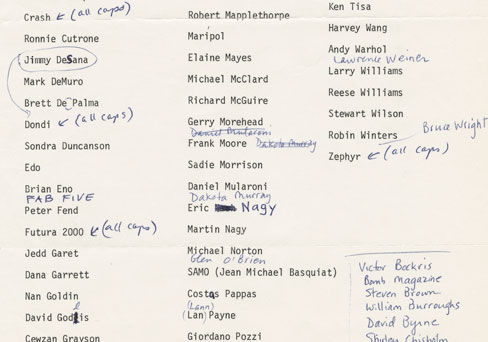 Crash ← (all caps)
Ronnie Cutrone
Jimmy DeSana
Mark DeMuro
Brett De Palma
Dondi ← (all caps)
Sondra Duncanson
Edo
Brian Eno
FAB FIVE
Peter Fend
Futura 2000 ← (all caps)
Jedd Garet
Dana Garrett
Nan Goldin
David Godlis
Cewzan Grayson
Robert Mapplethorpe
Maripol
Elaine Mayes
Michael McClard
Richard McGuire
Gerry Morehead
Daniel Mularoni
Frank Moore Dakota Murray
Sadie Morrison
Daniel Mularoni
Dakota Murray
Eric Nagy
Martin Nagy
Michael Norton
Glen O'Brien
SAMO (Jean Michael Basquiat)
Costas Pappas
(Lann)
(Lan) Payne
Giordano Pozzi
Ken Tisa
Harvey Wang
Andy Warhol
Lawrence Weiner
Larry Williams
Reese Williams
Stewart Wilson
Robin Winters
Bruce Wright
Zephyr ← (all caps)
Victor Bockris
Bomb Magazine
Steven Brown
William Burroughs
David Byrne
Shirley Chisholm